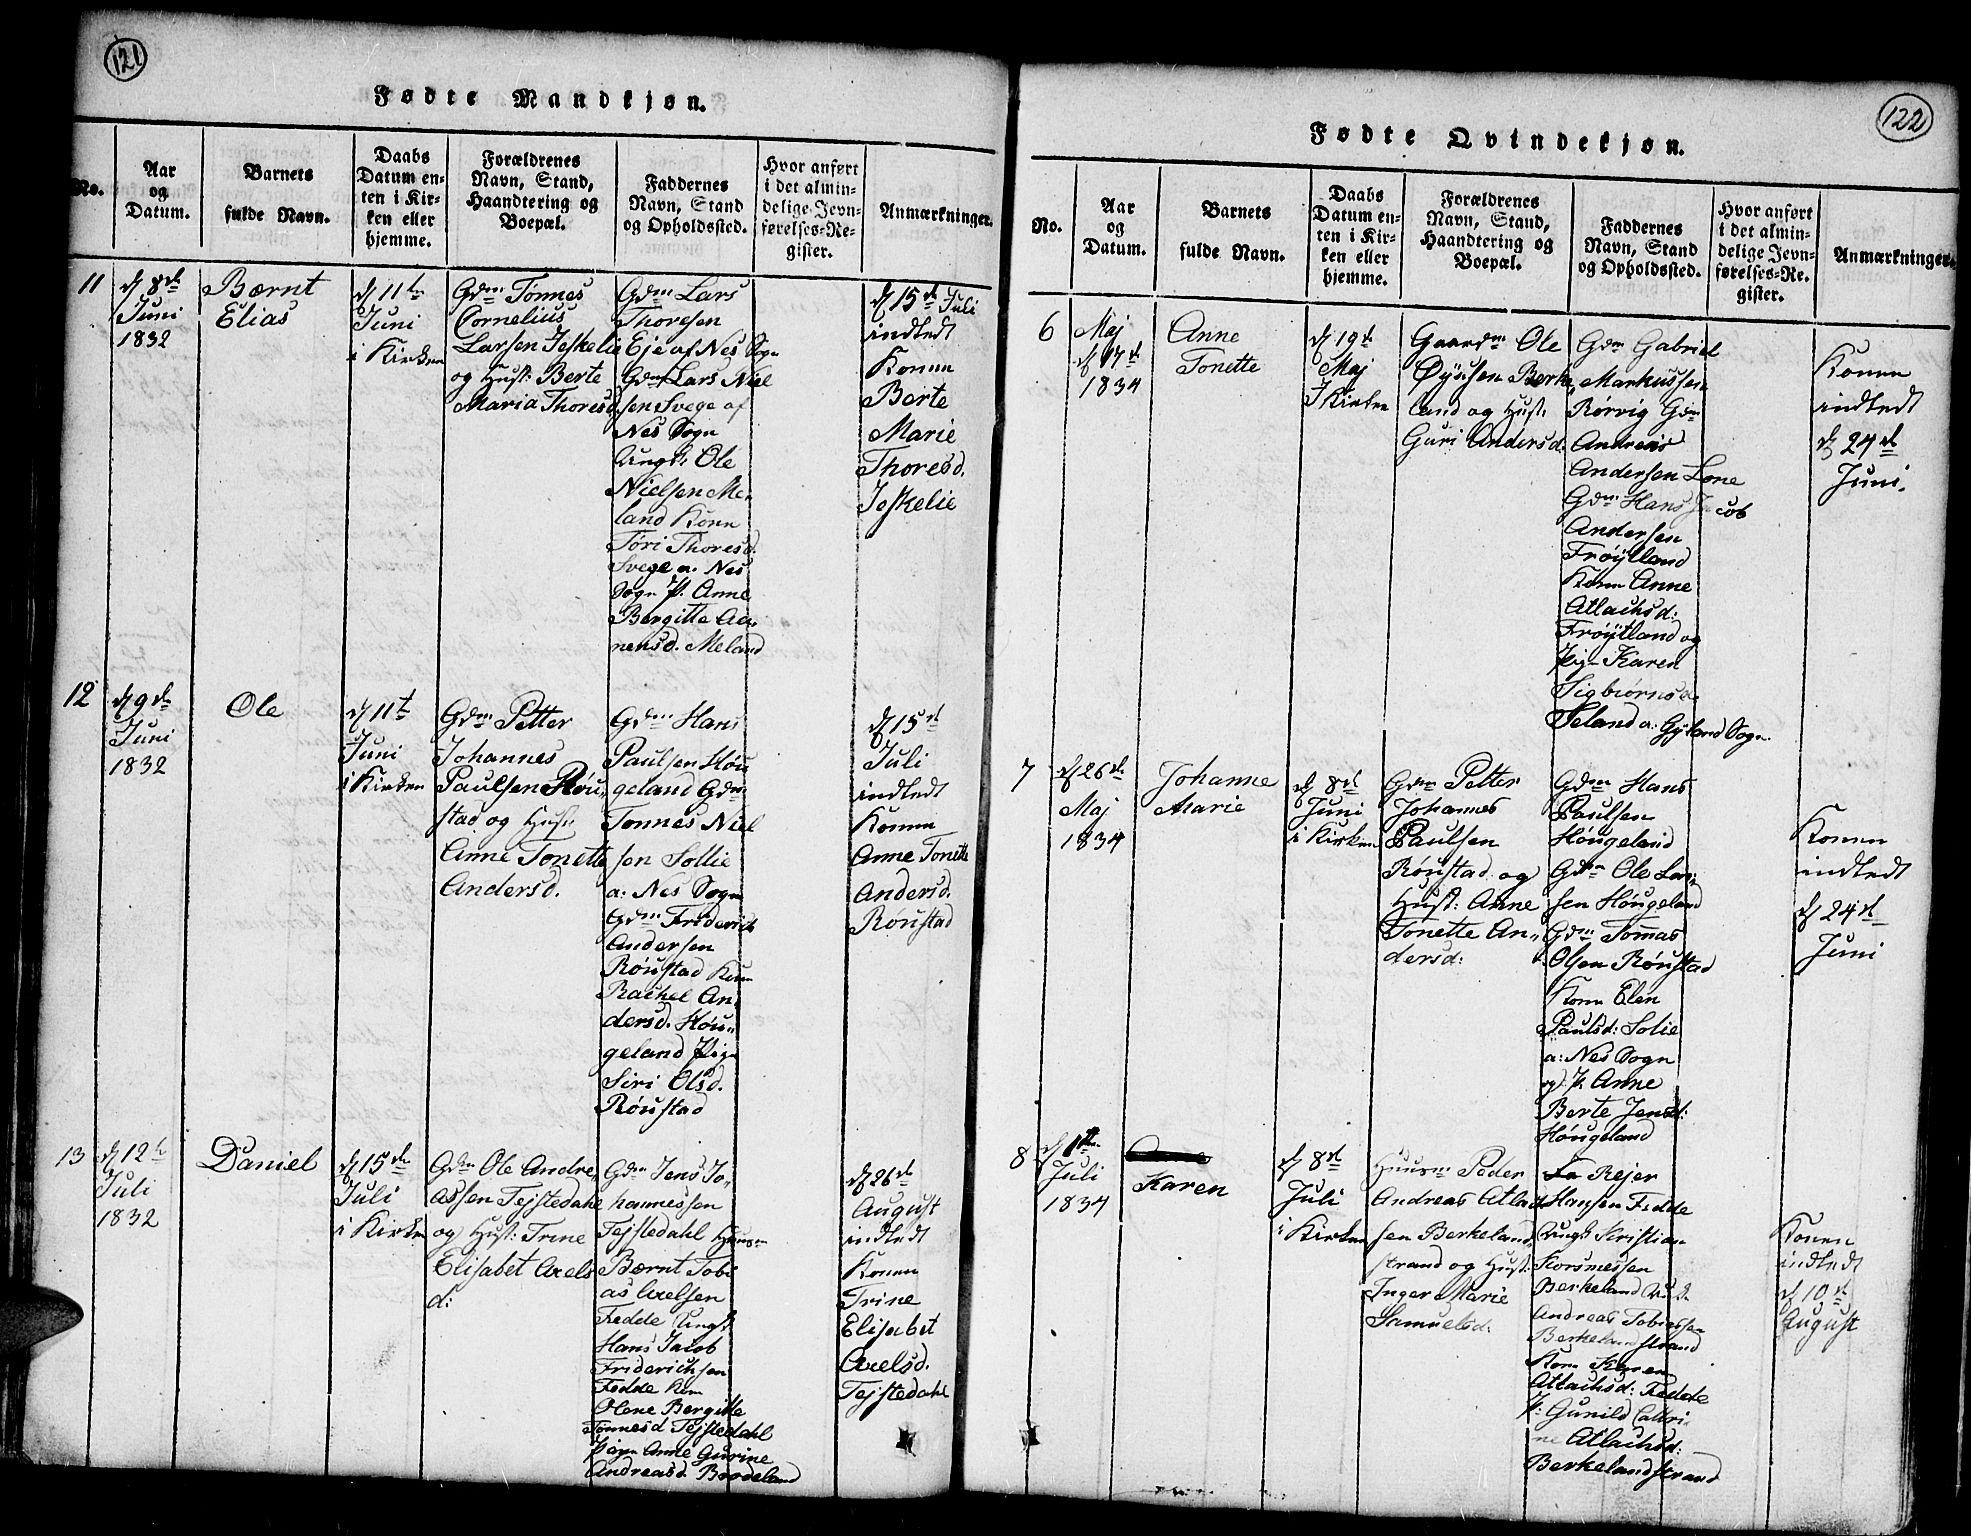 121
Fødte Mandkjøn.
No.
Aar
og
Datum.
Barnets
fulde Navn.
Daabs
Datum en-
ten i Kir-
ken eller
hjemme.
Forældrenes
Navn, Stand,
Haandtering og
Boepæl.
Faddernes
Navn, Stand
og Opholdssted.
Hvor anført
i det almin-
delige Jevn-
førelses-Re-
gister.
Anmærkninger.
11
d 8de
Juni
1832
Bærnt
Elias
d 11te
Juni
i Kirken
Gdm Tønnes
Cornelius
Larsen Jeskelie
og Hust: Berte
Maria Thoresd.
Gdm Lars
Thoresen
Eje af Nes Sogn
Gdm Lars Niel
sen Svege af
Nes Sogn
Ungk: Ole
Nielsen Me-
land Konn
Tori Thoresd.
Svege a: Nes
Sogn P: Anne
Bergitte Aa-
nensd. Meland
d 15de Juli
indledt
Konen
Berte
Marie
Thoresd.
Jeskelie
12
d 9de
Juni
1832
Ole
d 11t
Juni
i Kirken
Gdm Petter
Johannes
Paulsen Røu-
stad og Hust:
Anne Tonette
Andersd.
Gdm Hans
Paulsen Høu
geland Gdm
Tonnes Niel
sen Sollie
a: Nes Sogn
Gdm Friderich
Andersen
Røustad Kun
Rachel An-
dersd. Høu-
geland Pige
Siri Olsd.
Røustad
d 15de
Juli
indledt
Konen
Anne Tonette
Andersd.
Røustad
13
d 12te
Juli
1832
Daniel
d 15de
Juli
i Kirken
Gdm Ole Andre-
assen Tejstedahl
og Hust: Trine
Elisabet Axels
d:
Gdm Jens Jo-
hannessen
Tejstedahl Huusm
Bærnt Tobi
as Axelsen
Fedde Ungk
Hans Jacob
Friderichsen
Fedde Kon
Olene Bergitte
Tønnesd Tejstedahl
Pigen Anne Gurine
Andreasd. Brodeland
d 26de
August
indledt
Konen
Trine
Elisabet
Axelsd.
Tejstedahl
122
Fødte Qvindekjøn.
No.
Aar
og
Datum.
Barnets
fulde Navn.
Daabs
Datum en-
ten i Kir-
ken eller
hjemme.
Forældrenes
Navn, Stand,
Haandtering og
Boepæl.
Faddernes
Navn, Stand
og Opholdssted.
Hvor anført
i det almin-
delige Jevn-
førelses-Re-
gister.
Anmærkninger.
6
Maj
d 17de
1834
Anne
Tonette
d 19de
Maj
I Kirken
Gaardm Ole
Øysen Berke-
land og Hust:
Guri Andersd:
Gdm Gabriel
Markussen
Rørvig Gdm
Andreas
Andersen Lone
Gdm Hans Jacob
Andersen
Frøytland
Konn Anne
Atlachsd:
Frøytland og
Pige Karen
Sigbiørnsd
Seland a: Gyland Sogn.
Konen
indledt
d 24de
Juni.
7
d 26de
Maj
1834
Johanne
Marie
d 8de
Juni
i Kirken
Gdm Petter
Johannes
Paulsen
Røustad og
Hust: Anne
Tonette An-
dersd:
Gdm Hans
Paulsen
Høugeland
Gdm Ole Lar-
sen Høugeland
Gdm Tomas
Olsen Røustad
Konn Elen
Paulsd: Solie
a: Nes Sogn
og P: Anne
Berte Jensd:
Høugeland
Konen
indledt
d 24de
Juni
8
Juli
1834
Karen
d 8de
Juli
i Kirken
Huusm Peder
Andreas Atlach
sen Berkeland
strand og Hust:
Inger Marie
Samuelsd:
Rejer
Hansen Fedde
Ungk Kristian
Korsmessen
Berkeland
Andreas Tobiassen
Berkelandstrand
Kon Karen
Atlachsd: Fedde
P: Gunild Cathri-
ne Atlachsd:
Berkelandstrand
Konen
indledt
d 10de
August